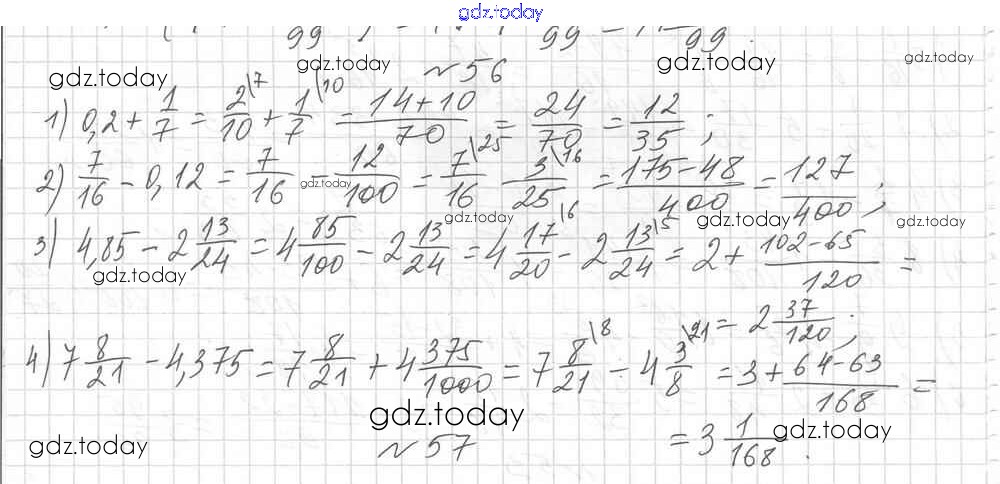 gdz.today
99 99 99
gdz.today gdz.today gdz.today
№ 56
1) 0,2 + 1/7 = 2/10 \7 + 1/7 \10 = (14+10)/70 = 24/70 = 12/35 ;
2) 7/16 - 0,12 = 7/16 - 12/100 = 7/16 \25 - 3/25 \16 = (175-48)/400 = 127/400 ;
gdz.today gdz.today gdz.today gdz.today
3) 4,85 - 2 13/24 = 4 85/100 - 2 13/24 = 4 17/20 \6 - 2 13/24 \5 = 2 + (102-65)/120 =
gdz.today
= 2 37/120 ;
4) 7 8/21 - 4,375 = 7 8/21 + 4 375/1000 = 7 8/21 \8 - 4 3/8 \21 = 3 + (64-63)/168 =
gdz.today
= 3 1/168 .
gdz.today gdz.today
№ 57